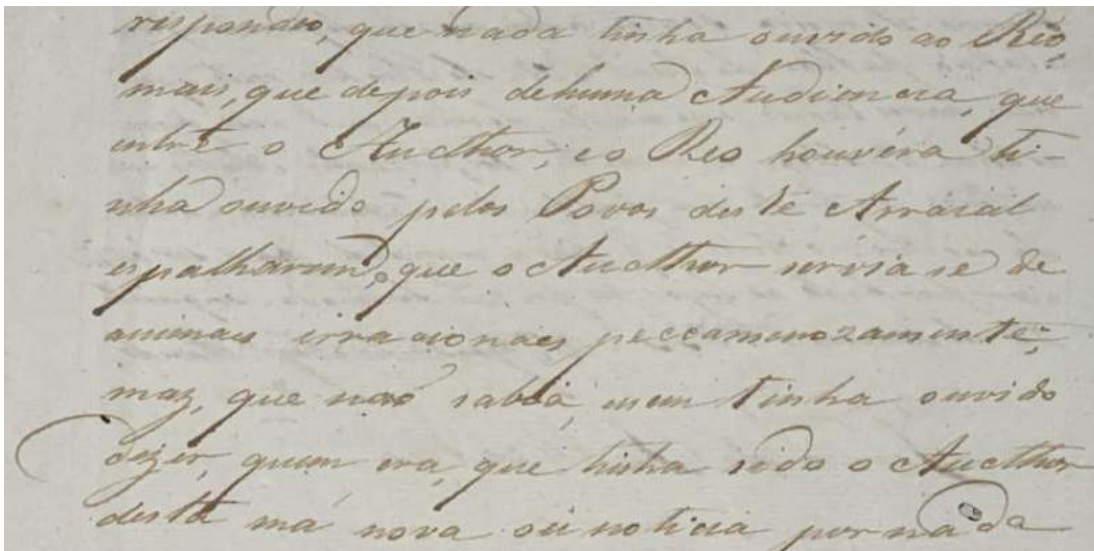 respondeo, que nada tinha ouvido ao Reo,
mais, que depois dehuma Audiencia, que
entre o Aucthor, e o Reo houvéra ti-
nha ouvido pelos Povos deste Arraial
espalharem, que o Aucthor servia se de
animais irracionaes peccaminozamente,
maz, que naõ sabia, nem tinha ouvido
dizer, quem era, que tinha sido o Aucthor
desta má nova ou noticia por nada